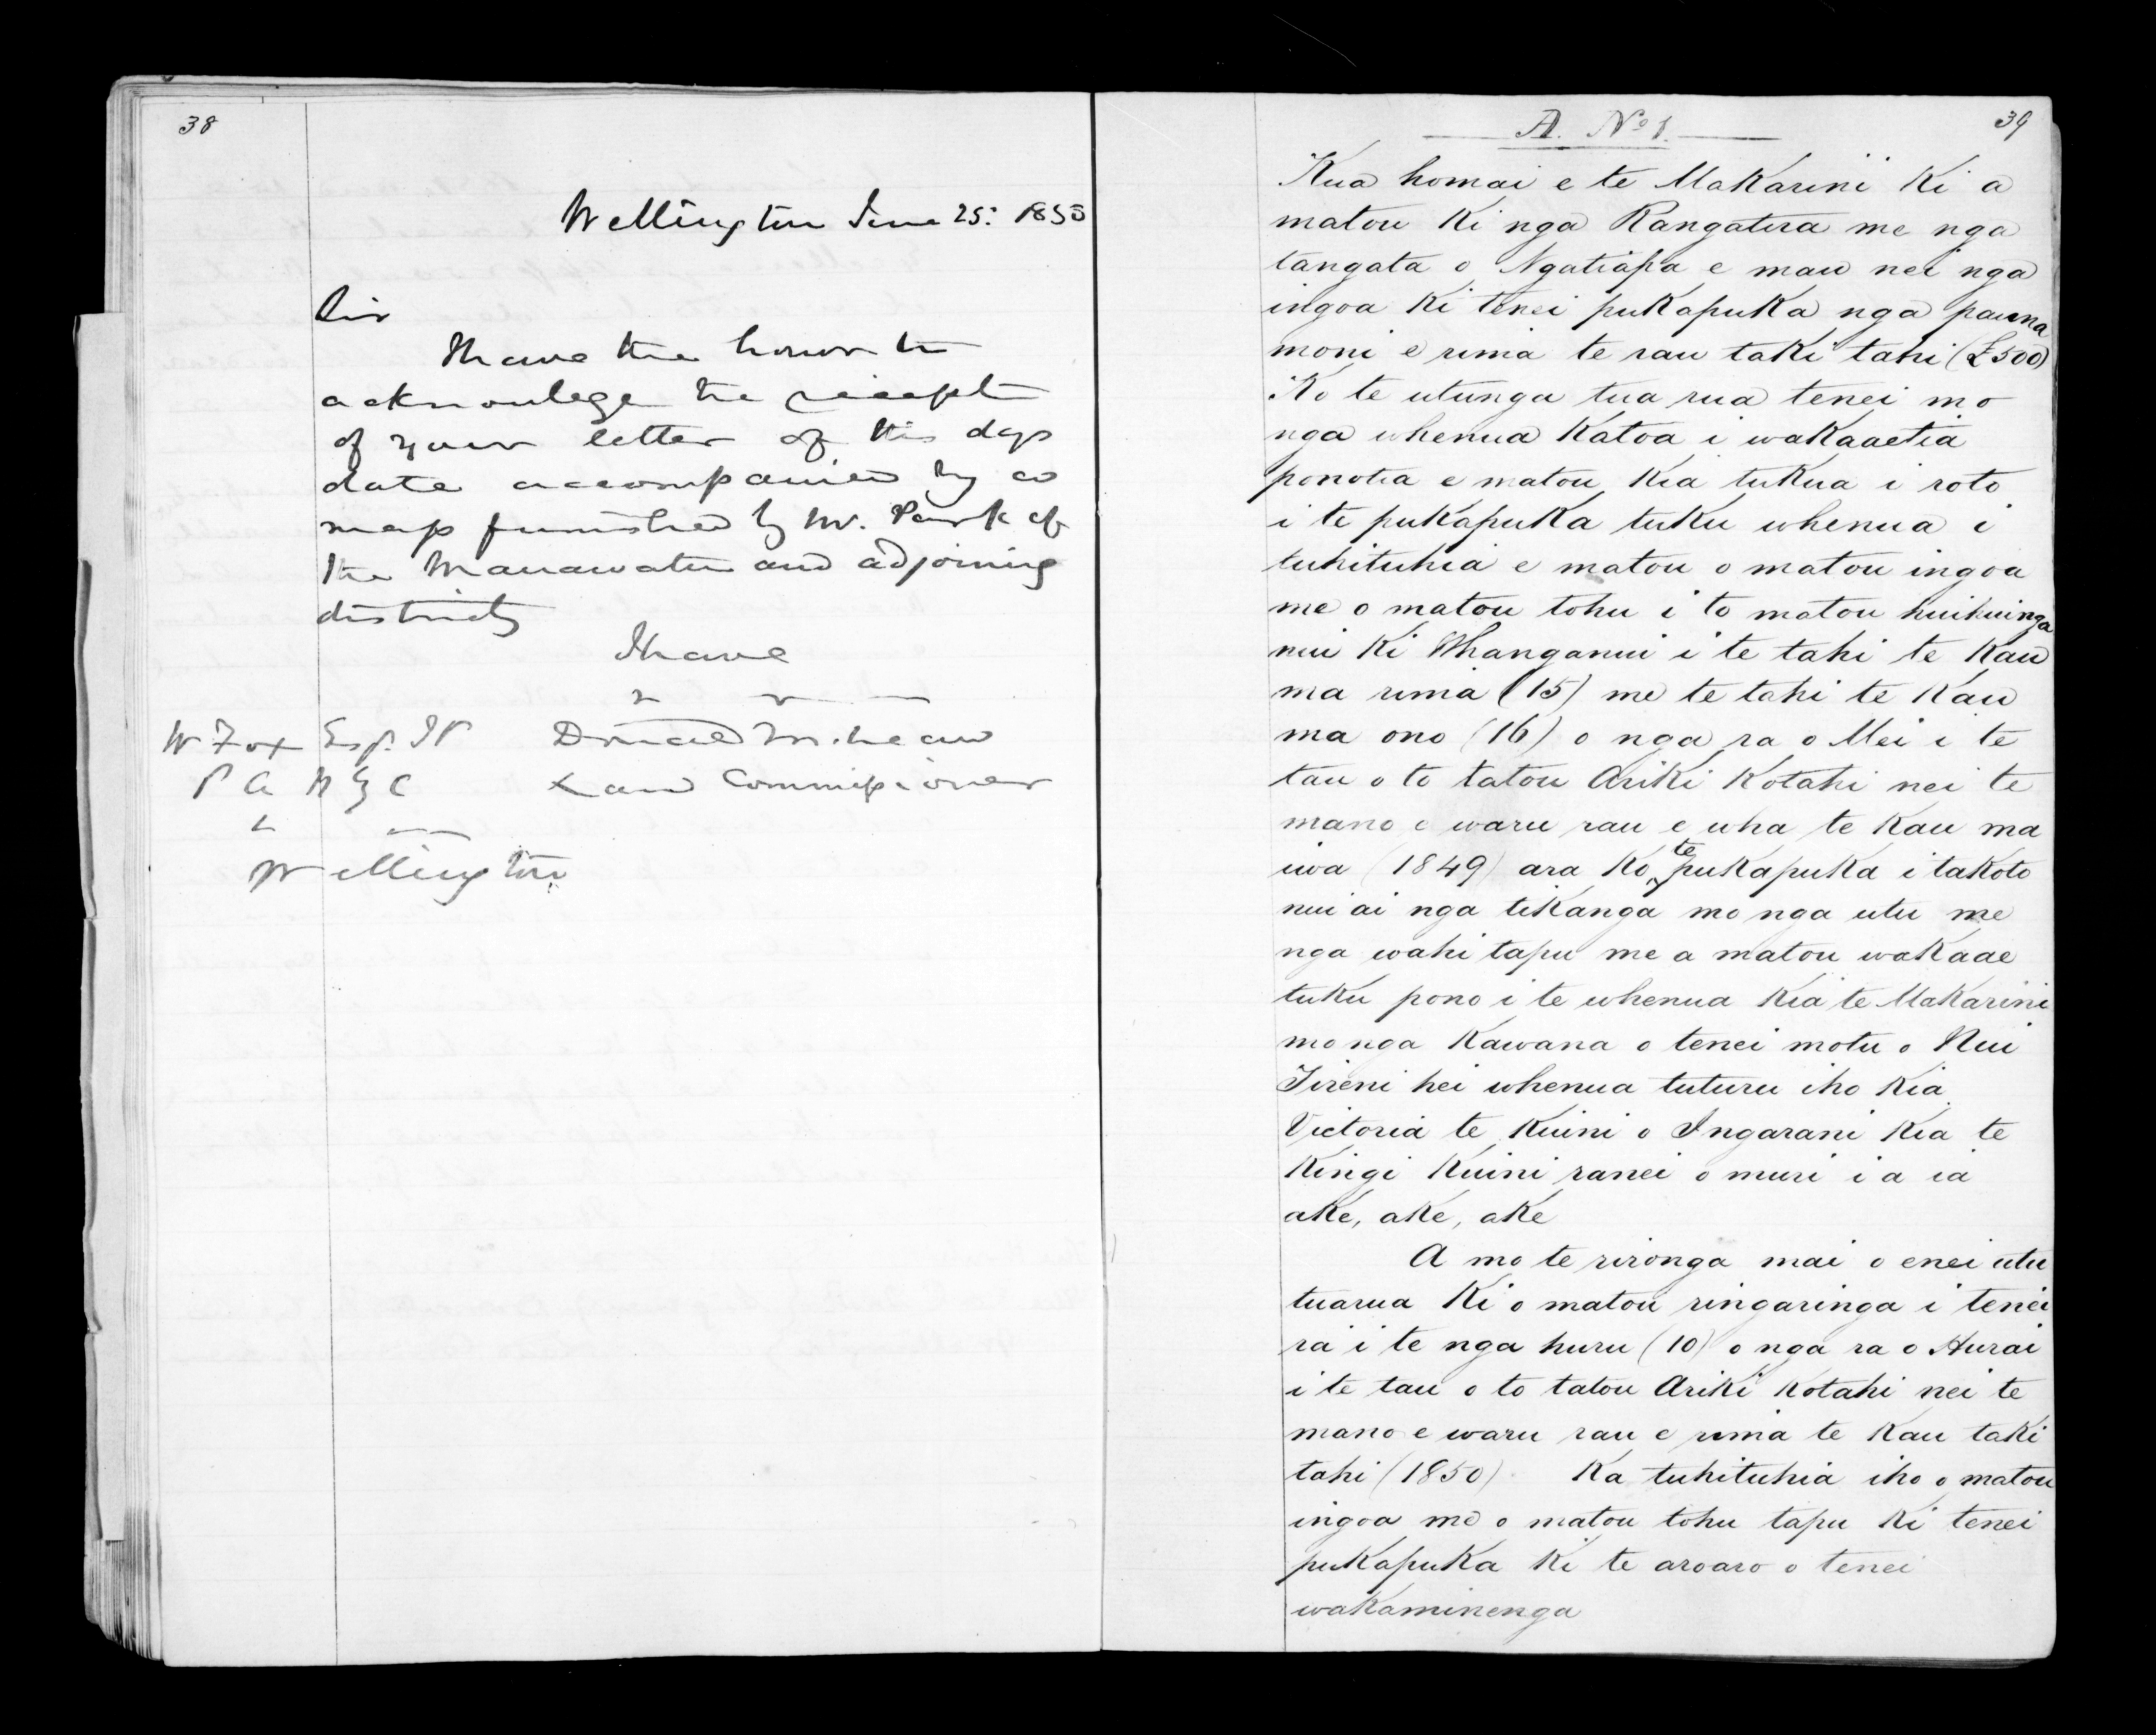 38
Wellington June 25: 1850
Sir
I have the honor to
acknowlege the receipt
of your letter of this days
date accompanied by a
map furnished by Mr. Park of
the Manawatu and adjoining
districts
I have
W Fox Esq. JP
Donald McLean
P A N Z C
Land Commissioner
Wellington
39
A. No 1.
Kua homai e te Makarini ki a
matou ki nga Rangatira me nga
tangata o Ngatiapa e mau nei nga
ingoa ki tenei pukapuka nga pauna
moni e rima te rau taki tahi (£500)
Ko te utunga tua rua tenei mo
nga whenua katoa i wakaaetia
ponotia e matou kia tukua i roto
i te pukapuka tuku whenua i
tuhituhia e matou o matou ingoa
me o matou tohu i to matou huihuinga
nui ki Whanganui i te tahi te kau
ma rima (15) me te tahi te kau
ma ono (16) o nga ra o Mei i te
tau o to tatou Ariki Kotahi nei te
mano e waru rau e wha te kau ma
iwa (1849) ara ko te pukapuka i takoto
nui ai nga tikanga mo nga utu me
nga wahi tapu me a matou wakaae
tuku pono i te whenua kia te Makarini
mo nga Kawana o tenei motu o Nui
Tireni hei whenua tuturu iho kia
Victoria te Kuini o Ingarani kia te
Kingi Kuini ranei o muri i a ia
ake, ake, ake
A mo te rironga mai o enei utu
tuarua ki o matou ringaringa i tenei
ra i te nga huru (10) o nga ra o Hurai
i te tau o to tatou Ariki kotahi nei te
mano e waru rau e rima te kau taki
tahi (1850) Ka tuhituhia iho o matou
ingoa me o matou tohu tapu ki tenei
pukapuka ki te aroaro o tenei
wakaminenga